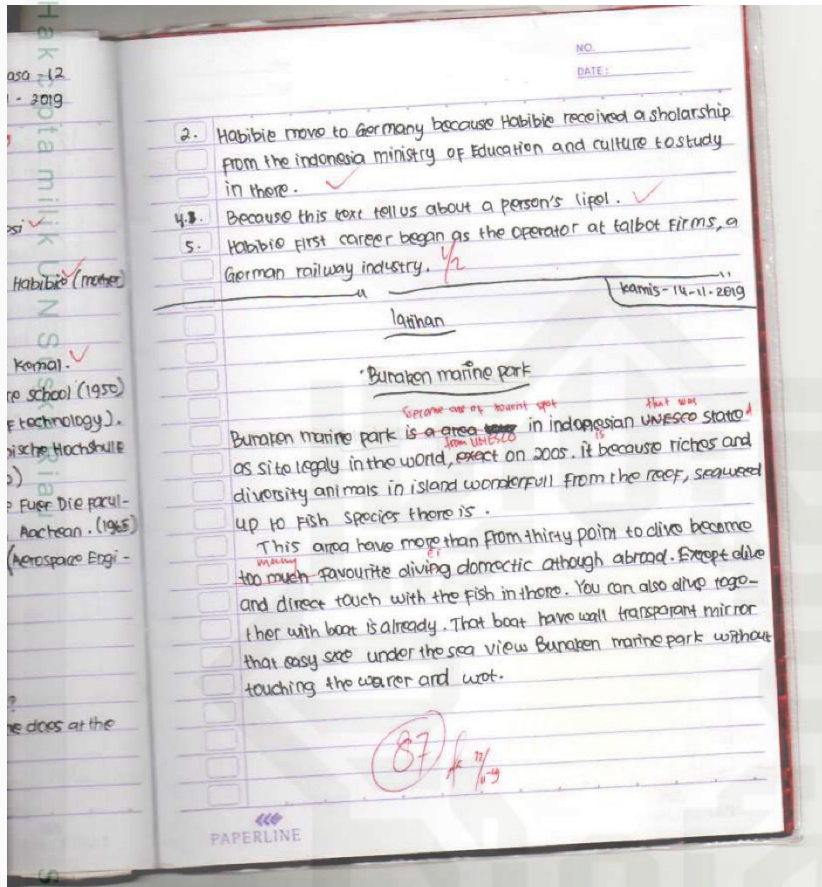 Hak cipta milik UIN Suska Ria
asa - 12
1 - 2019
Habibie (mother)
Komal.
re school (1950)
F technology).
ische Hochshule
Fuer Die Facul-
Aachean. (1965)
(Aerospace Engi-
?
he does at the
NO.
DATE:
2. Habibie move to Germany because Habibie received a sholarship
from the indonesia ministry of Education and culture to study
in there.
4.3. Because this text tell us about a person's lifel.
5. Habibie first career began as the operator at talbot firms, a
German railway industry. 1/2
kamis - 14-11-2019
latihan
Bunaken marine park
become one of tourist spot that was
Bunaken marine park is a area in indonesian UNESCO stated
from UNESCO is
as site legaly in the world, exact on 2005. it because riches and
diversity animals in island wonderfull from the reef, seaweed
up to fish species there is.
This area have more than from thirty point to dive become
many er
too much favourite diving domectic athough abroad. Except dive
and direct touch with the fish in there. You can also dive toge-
ther with boat is already. That boat have wall transparant mirror
that easy see under the sea view Bunaken marine park without
touching the water and wet.
87
PAPERLINE